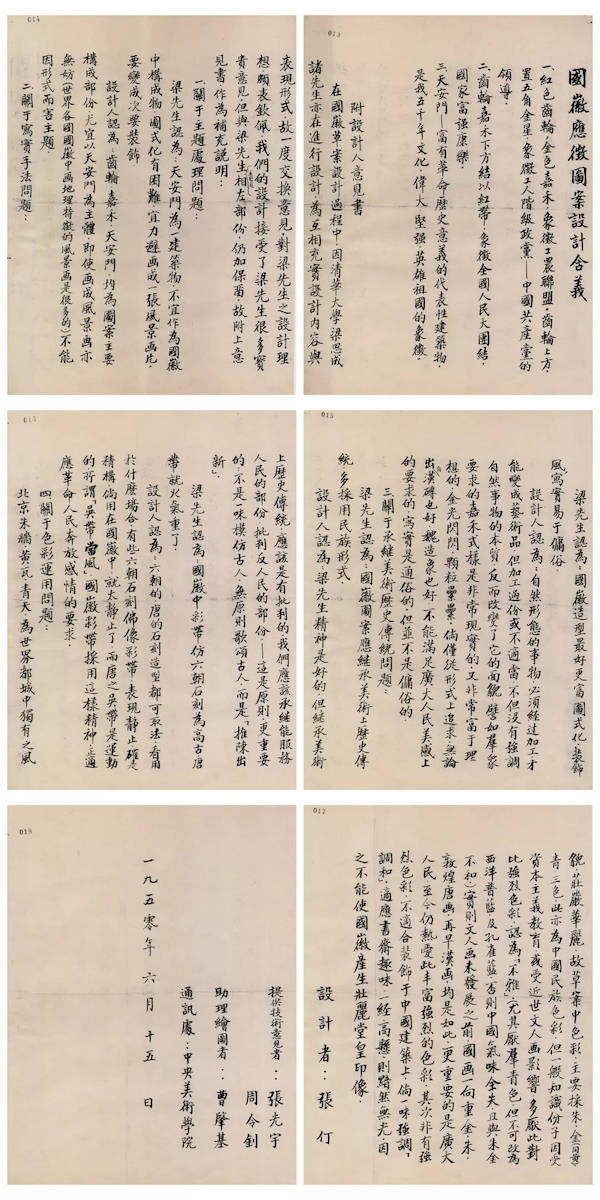 013
國徽應徵圖案設計含義
一.紅色齒輪,金色嘉禾,象徵工農聯盟.齒輪上方,
置五角金星,象徵工人階級政黨——中國共產黨的
領導.
二.齒輪嘉禾下方結以紅帶,象徵全國人民大團結,
國家富强康樂.
三.天安門——富有革命歷史意義的代表性建築物,
是我五千年文化,偉大,堅强,英雄祖國的象徵.
附設計人意見書
在國徽草案設計過程中,因清華大學梁思成
諸先生亦在進行設計,為互相充實設計内容與
014
表現形式,故一度交換意見,對梁先生之設計理
想,願表欽佩,我們的設計接受了梁先生很多寶
貴意見,但與梁先生意見相左部份,仍加保留,故附上意
見書作為補充說明:
一.關于主題處理問題:
梁先生認為:天安門為一建築物,不宜作為國徽
中構成物,圖式化有困難,宜力避画成一張風景画片,
要變成次要裝飾.
設計人認為:齒輪,嘉禾,天安門,均為圖案主要
構成部份,尤宜以天安門為主體,即使画成風景画亦
無妨(世界各國國徽中画地理特徵的風景画是很多的)不能
因形式而害主題.
二.關于寫實手法問題:
015
梁先生認為:國徽造型最好更富圖式化,裝飾
風,寫實易于傭俗.
設計人認為:自然形態的事物,必須經过加工才
能變成藝術品,但加工过份或不適當,不但没有強調
自然事物的本質,反而改變了它的面貌,譬如羣象
要求的嘉禾式樣是非常現實的,又非常富于理
想的,金光閃閃,顆粒纍纍,倘僅從形式上追求,無論
出自漢磚也好,魏造象也好,不能滿足廣大人民美感上
的要求的,寫實是通俗的,但並不是傭俗的
三.關于承継美術歷史傳統問題:
梁先生認為:國徽圖案應継承美術上歷史傳
統,多採用民族形式.
設計人認為:梁先生精神是好的,但継承美術
上歷史傳統,應該是有批判的,我們應該承継能服務
人民的部份,批判反人民的部份——這是原則,更重要
的不是一味模仿古人,無原則歌頌古人,而是「推陳出
新」.
梁先生認為國徽中彩帶仿六朝石刻為高古,唐
帶就火氣重了.
設計人認為:六朝的,唐的石刻造型都可取法,看用
於什麼場合,有些六朝石刻佛像彩帶,表現静止,確是
精構,倘用在國徽中,就太静止了,而唐之吳帶是運動
的,所謂「吳帶當風」國徽彩帶採用這樣精神,正適
應革命人民奔放感情的要求.
四.關于色彩運用問題:
北京朱牆,黃瓦,青天,為世界都城中獨有之風
017
貌,莊嚴華麗,故草案中色彩,主要採朱,金(同黃)
青三色,此亦為中國民族色彩,但一般知識份子因受
資本主義教育,或受近世文人画影響,多厭此對
比強烈色彩,認為「不雅」,尤其厭羣青色,但不可改為
西洋普藍及孔雀藍,否則中國氣味全失,且與朱金
不和)實則文人画未發展之前,國画一向重金,朱,
敦煌,唐画,再早漢画,均是如此,更重要的是廣大
人民,至今仍熱愛此丰富強烈的色彩,其次非有強
烈色彩,不適合裝飾于中國建築上,倘一味強調,
調和,適應書齋趣味,一經高懸,則黯然無光,因
之不能使國徽產生壯麗堂皇印像.
設計者:張仃
018
提供技術意見者:張光宇
周令釗
助理繪圖者:曹肇基
通訊處:中央美術學院
一九五零年六月十五日